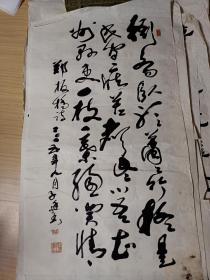 衙斋卧听萧萧竹疑是
民间疾苦声些小吾曹
州县吏一枝一叶总关情
郑板桥诗
年九月